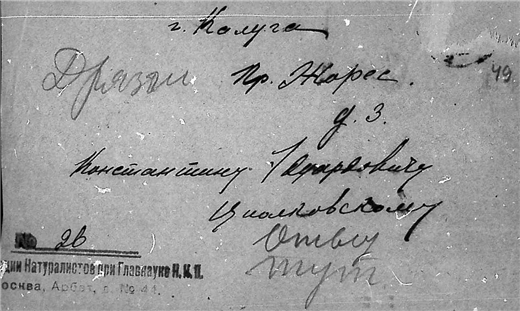 г. Калуга
Дрязги Пр. Жорес.
49
д. 3.
Константину Эдуардовичу
Циолковскому
№ 26
Ответ
тут.
ции Натуралистов при Главнауке Н. К. П.
осква, Арбат, д. № 44.